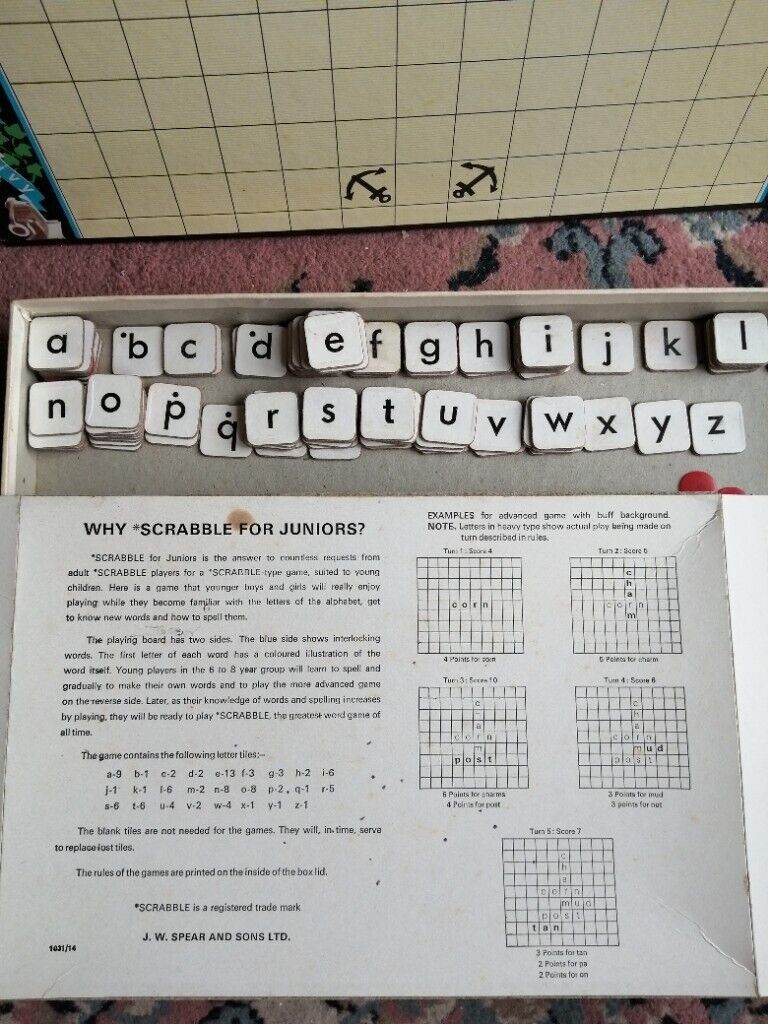 a b c d e f g h i j k l
n o p q r s t u v w x y z
WHY *SCRABBLE FOR JUNIORS?
*SCRABBLE for Juniors is the answer to countless requests from
adult *SCRABBLE players for a *SCRABBLE-type game, suited to young
children. Here is a game that younger boys and girls will really enjoy
playing while they become familiar with the letters of the alphabet, get
to know new words and how to spell them.
The playing board has two sides. The blue side shows interlocking
words. The first letter of each word has a coloured illustration of the
word itself. Young players in the 6 to 8 year group will learn to spell and
gradually to make their own words and to play the more advanced game
on the reverse side. Later, as their knowledge of words and spelling increases
by playing, they will be ready to play *SCRABBLE, the greatest word game of
all time.
The game contains the following letter tiles:–
a-9 b-1 c-2 d-2 e-13 f-3 g-3 h-2 i-6
j-1 k-1 l-6 m-2 n-8 o-8 p-2 q-1 r-5
s-6 t-6 u-4 v-2 w-4 x-1 y-1 z-1
The blank tiles are not needed for the games. They will, in time, serve
to replace lost tiles.
The rules of the games are printed on the inside of the box lid.
*SCRABBLE is a registered trade mark
J. W. SPEAR AND SONS LTD.
1031/14
EXAMPLES for advanced game with buff background.
NOTE. Letters in heavy type show actual play being made on
turn described in rules.
Turn 1: Score 4
corn
4 Points for corn
Turn 2: Score 5
c
h
a
corn
m
5 Points for charm
Turn 3: Score 10
c
h
a
corn
m
post
6 Points for charms
4 Points for post
Turn 4: Score 6
c
h
a
corn
mud
post
3 Points for mud
3 points for nut
Turn 5: Score 7
c
h
a
corn
mud
post
tan
3 Points for tan
2 Points for pa
2 Points for on